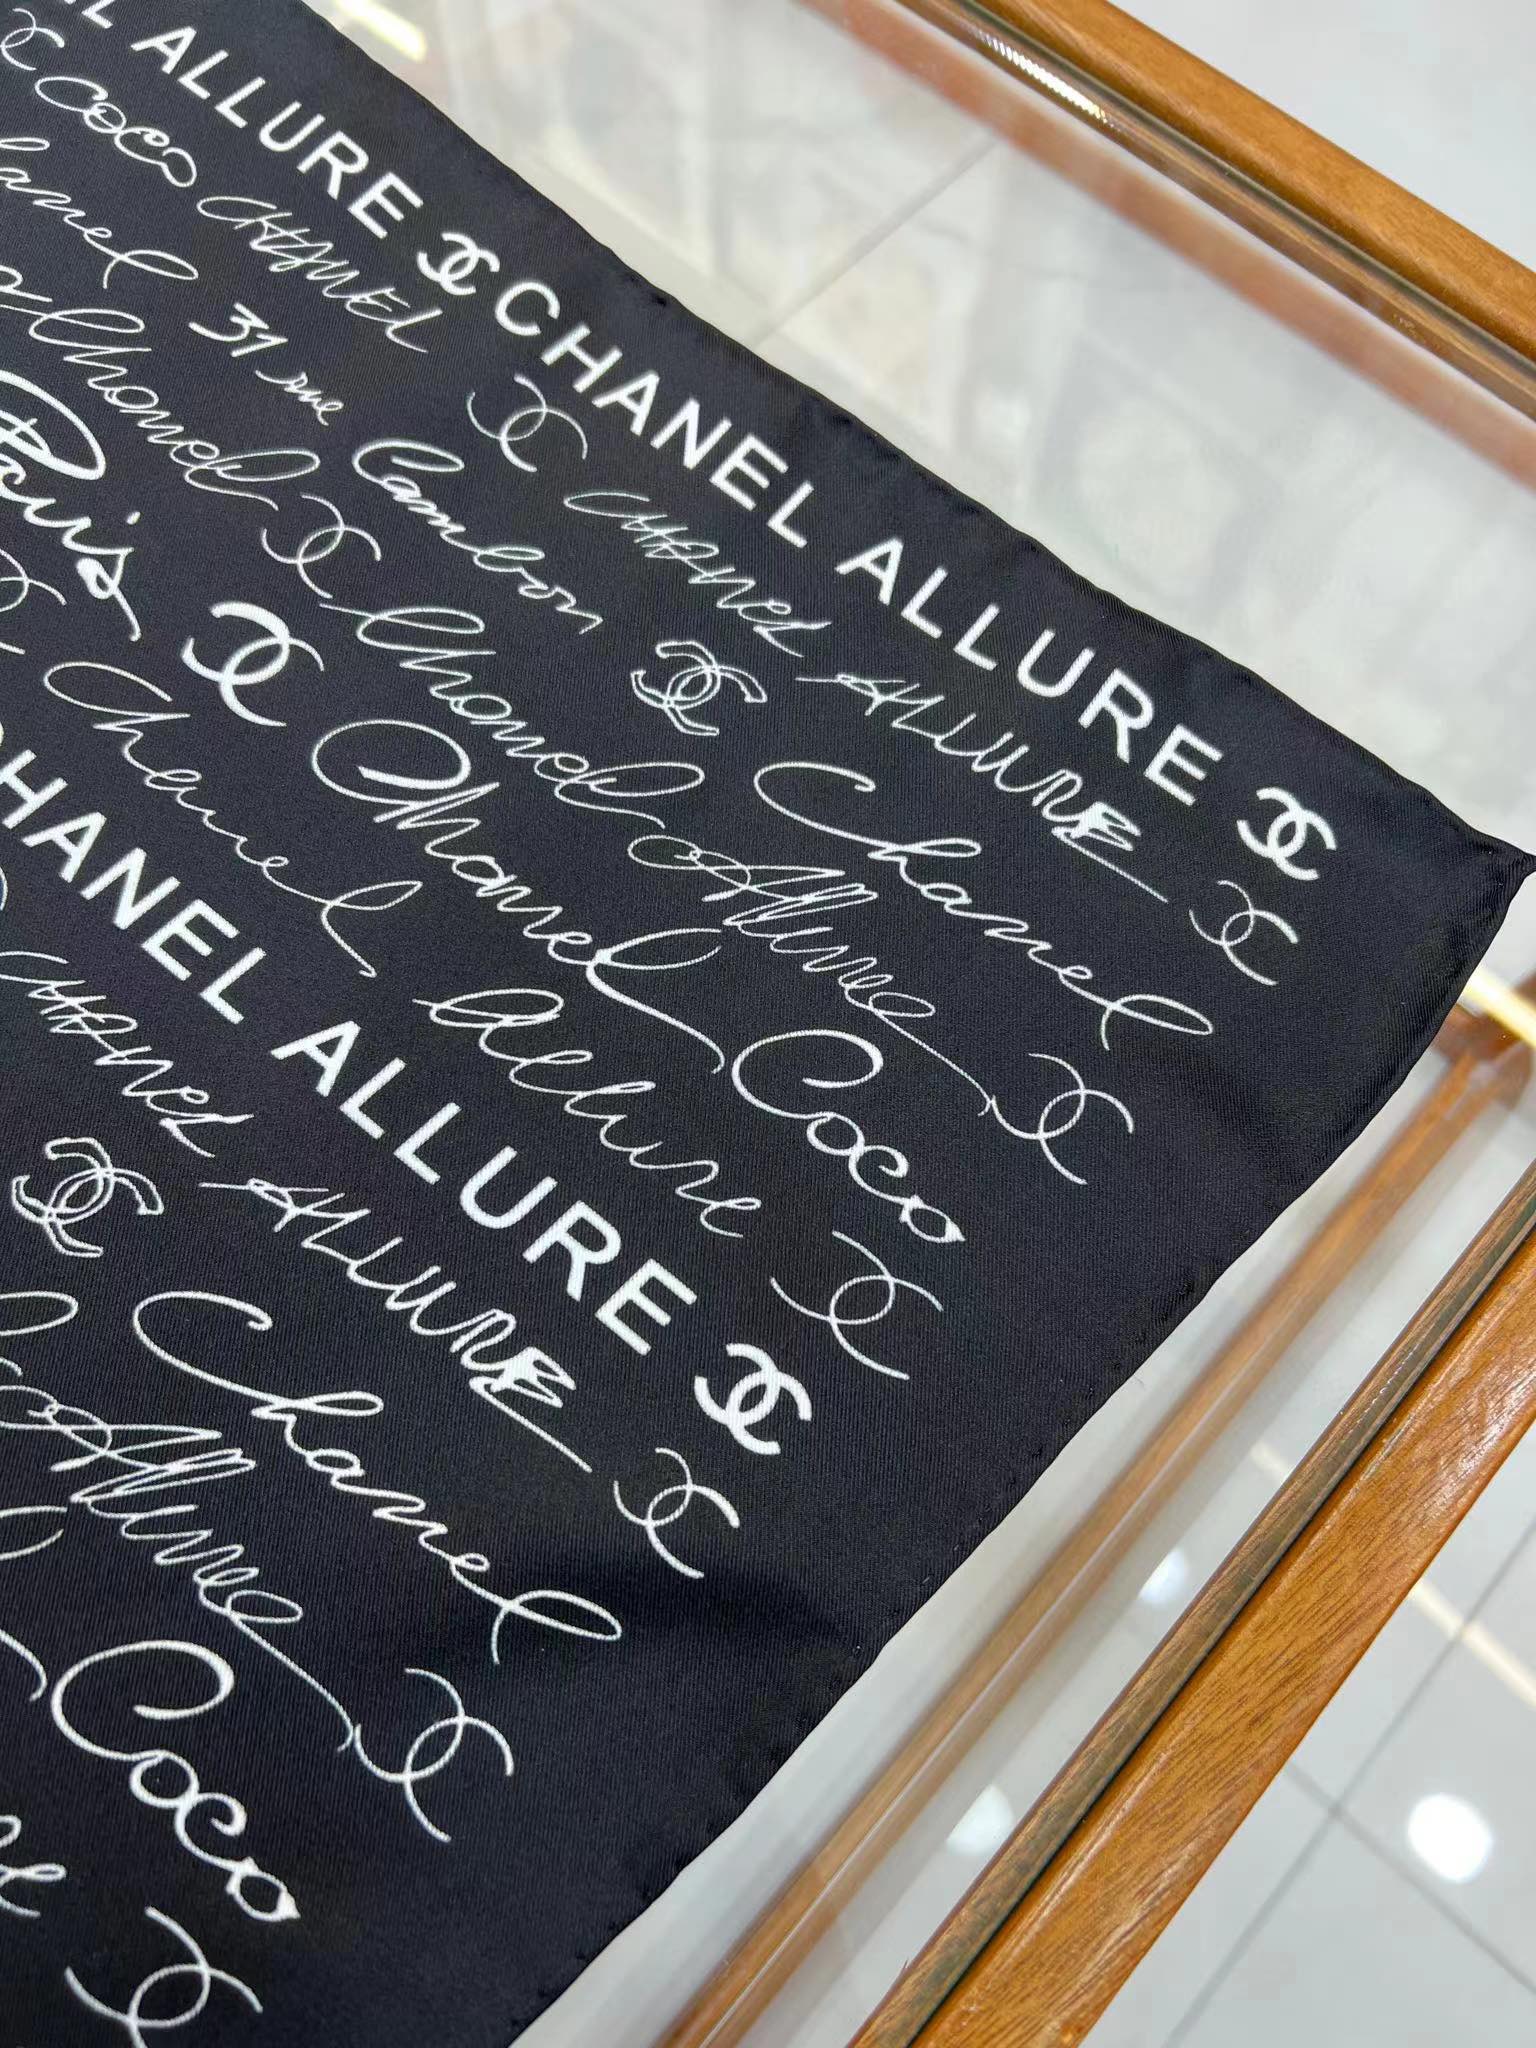 ALLURE CHANEL ALLURE
COCO CHANEL Chanel ALLURE
31 rue Cambon Chanel
Chanel Chanel Allure
Paris Chanel Coco
Chanel allure
CHANEL ALLURE
Chanel ALLURE
Chanel
Allure
Coco